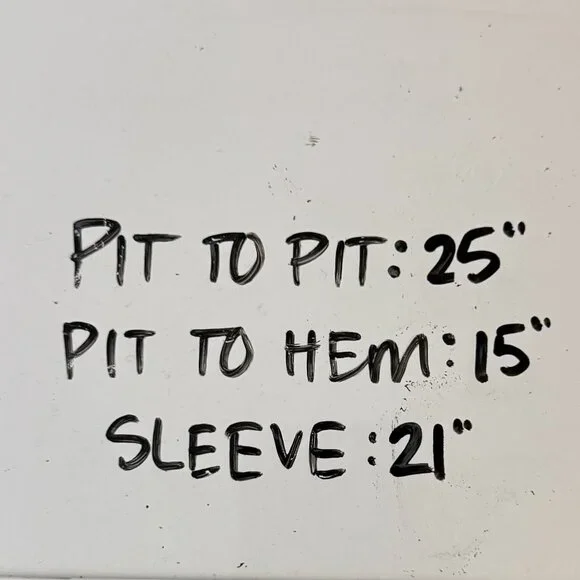 PIT TO PIT: 25"
PIT TO HEM: 15"
SLEEVE: 21"